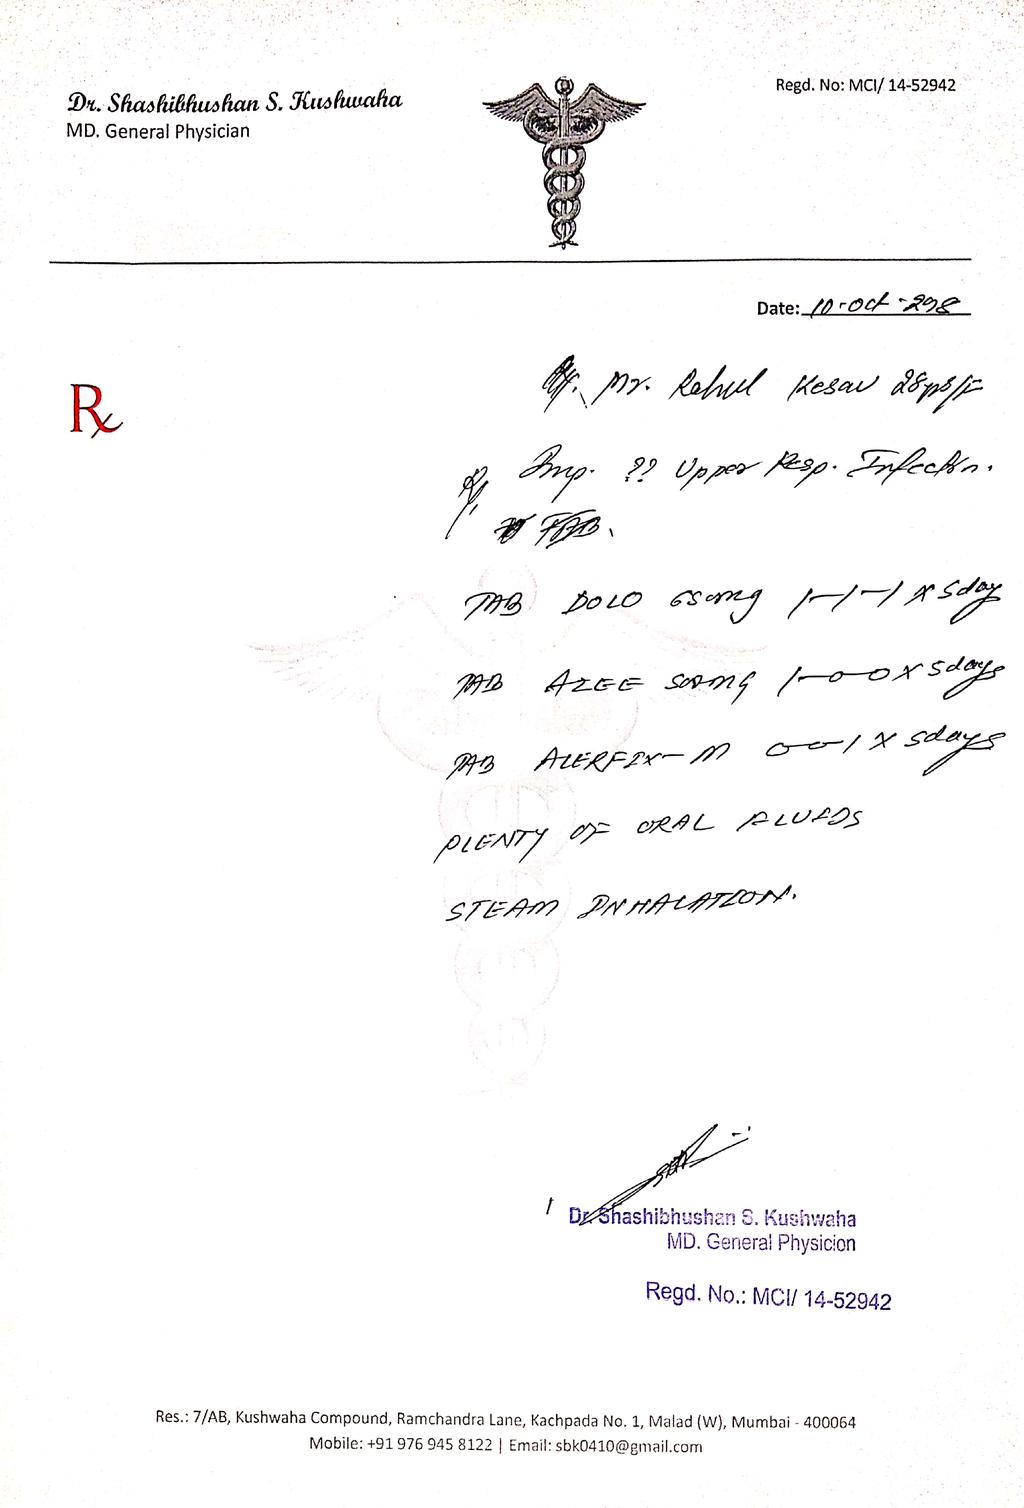 Dr. Shashibhushan S. Kushwaha
MD. General Physician
Regd. No: MCI/ 14-52942
Date: 10-Oct-
Rx
Mr. Rahul Kesav
Imp. ?? Upper Resp. Infection.
TAB DOLO 650mg 1-1-1 x 5day
TAB AZEE 500mg 1-0-0 x 5days
TAB ALERFIX-M 0-0-1 x 5days
PLENTY OF ORAL FLUIDS
STEAM INHALATION.
Dr. Shashibhushan S. Kushwaha
MD. General Physicion
Regd. No.: MCI/ 14-52942
Res.: 7/AB, Kushwaha Compound, Ramchandra Lane, Kachpada No. 1, Malad (W), Mumbai - 400064
Mobile: +91 976 945 8122 | Email: sbk0410@gmail.com